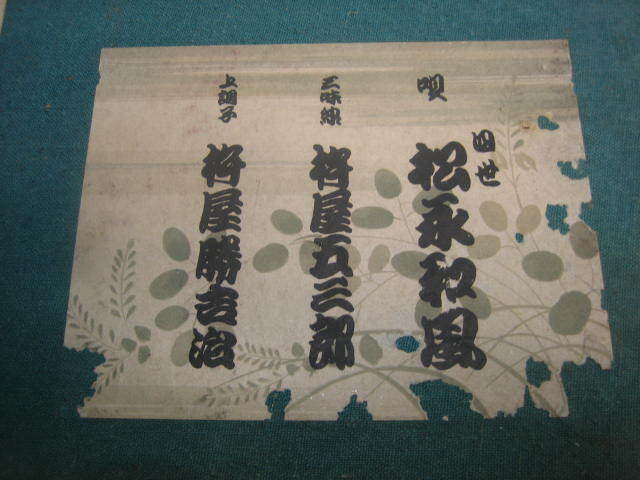 唄 四世 松永和風
三味線 杵屋五三郎
上調子 杵屋勝吉治